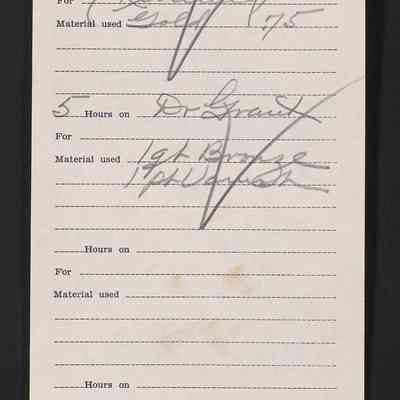 For
Material used Gold .75
5 Hours on Dr Grant
For
Material used 1 qt Bronze
1 pt Varnish
Hours on
For
Material used
Hours on